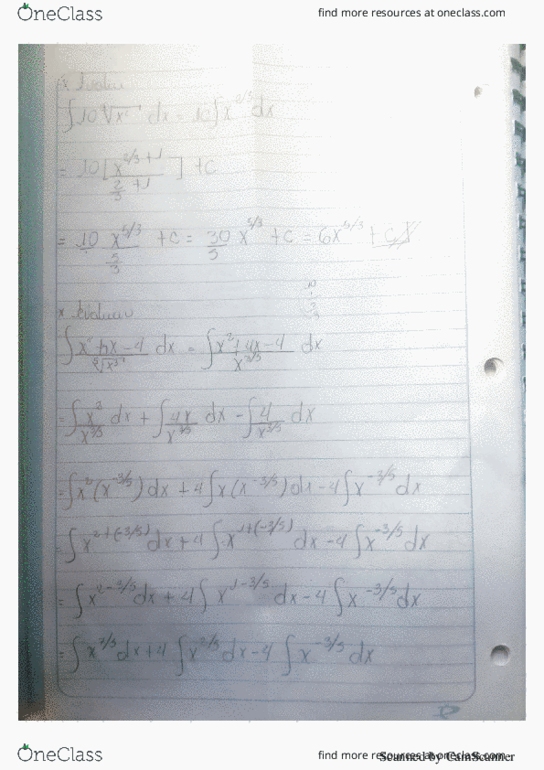 OneClass
find more resources at oneclass.com
∫10∛x² dx = 10∫x^2/3 dx
= 10[x^2/3+1 / 2/3 +1] + c
= 10 x^5/3 / 5/3 + c = 30/5 x^5/3 + c = 6x^5/3 + c
x Evaluar
∫ x²+4x-4 / ⁵√x³ dx = ∫ x²+4x-4 / x^3/5 dx
= ∫ x²/x^3/5 dx + ∫ 4x/x^3/5 dx - ∫ 4/x^3/5 dx
= ∫x²(x^-3/5) dx + 4∫x(x^-3/5) dx - 4∫x^-3/5 dx
= ∫x^2+(-3/5) dx + 4∫x^1+(-3/5) dx - 4∫x^-3/5 dx
= ∫x^2-3/5 dx + 4∫x^1-3/5 dx - 4∫x^-3/5 dx
= ∫x^7/5 dx + 4∫x^2/5 dx - 4∫x^-3/5 dx
OneClass
find more resources at oneclass.com
Scanned by CamScanner